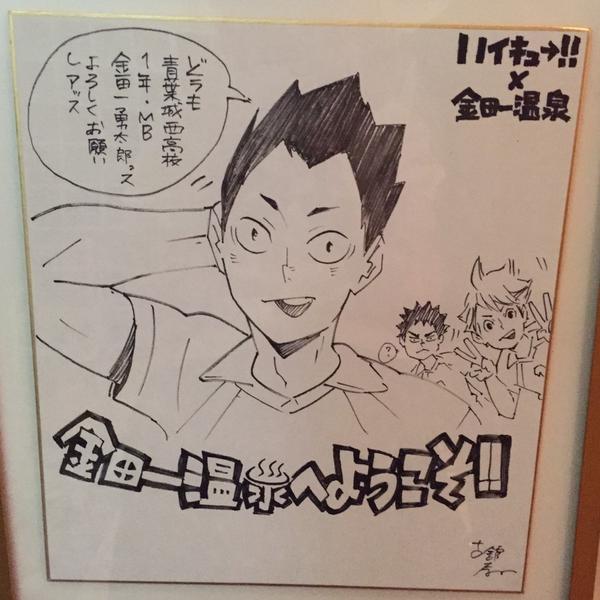 ハイキュー!!
×
金田一温泉
どうも
青葉城西高校
1年・MB
金田一勇太郎っス
よろしくお願い
しアッス
?
金田一温泉へようこそ!!